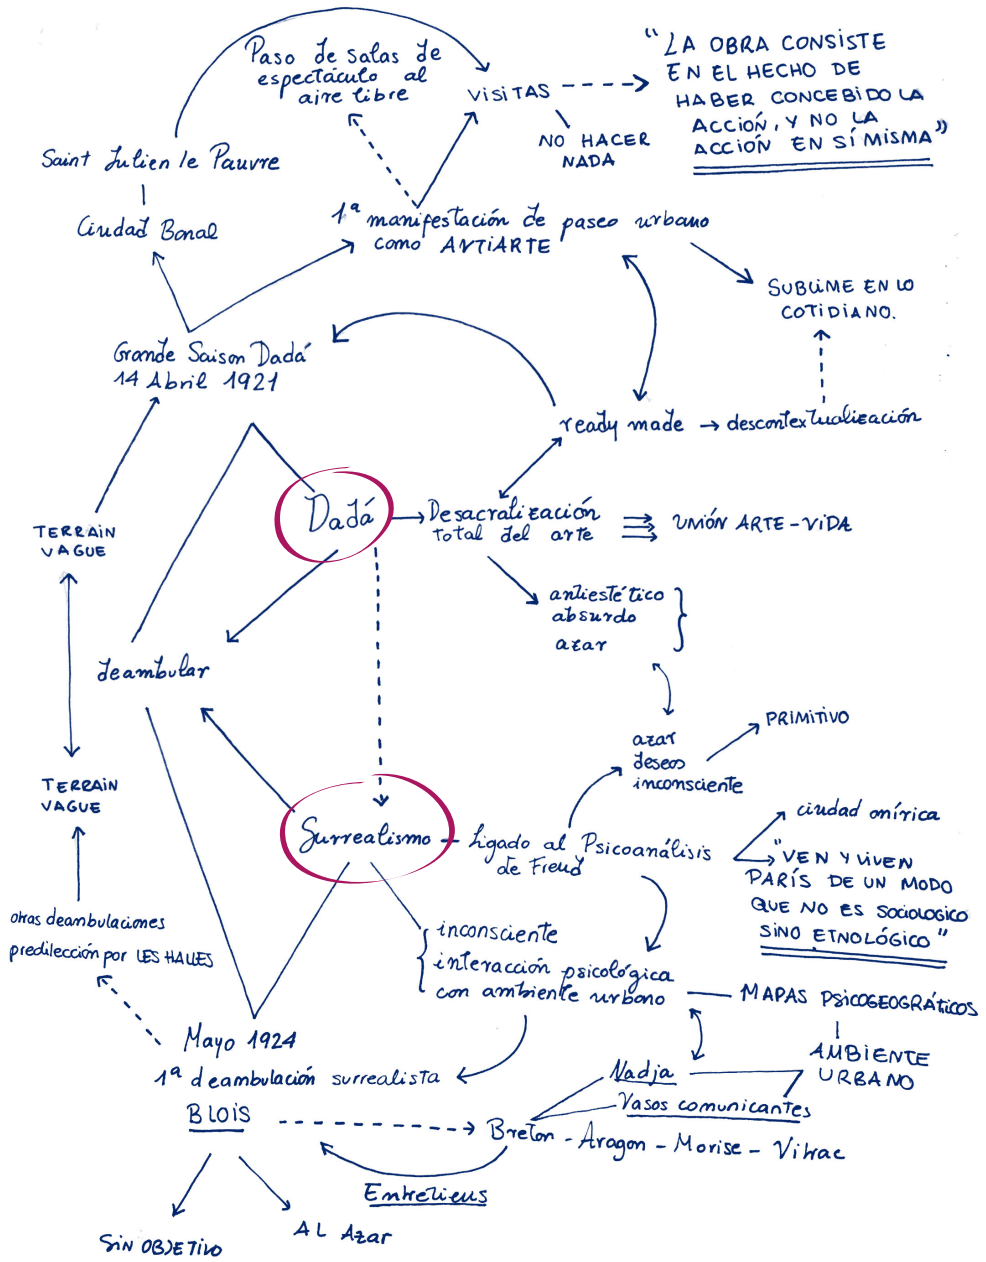 Paso de salas de
espectáculo al
aire libre
VISITAS
"LA OBRA CONSISTE
EN EL HECHO DE
HABER CONCEBIDO LA
ACCIÓN, Y NO LA
ACCIÓN EN SÍ MISMA"
NO HACER
NADA
Saint Julien le Pauvre
Ciudad Banal
1ª manifestación de paseo urbano
como ANTIARTE
SUBLIME EN LO
COTIDIANO.
Grande Saison Dadá
14 Abril 1921
ready made → descontextualización
Dadá
Desacralización
total del arte
UNIÓN ARTE-VIDA
TERRAIN
VAGUE
antiestético
absurdo
azar
deambular
azar
deseos
inconsciente
PRIMITIVO
TERRAIN
VAGUE
Surrealismo
Ligado al Psicoanálisis
de Freud
ciudad onírica
"VEN Y VIVEN
PARÍS DE UN MODO
QUE NO ES SOCIOLOGICO
SINO ETNOLÓGICO"
otras deambulaciones
predilección por LES HALLES
inconsciente
interacción psicológica
con ambiente urbano
MAPAS PSICOGEOGRÁFICOS
AMBIENTE
URBANO
Mayo 1924
1ª deambulación surrealista
BLOIS
Nadja
Vasos comunicantes
Breton - Aragon - Morise - Vitrac
Entretiens
SIN OBJETIVO
AL Azar